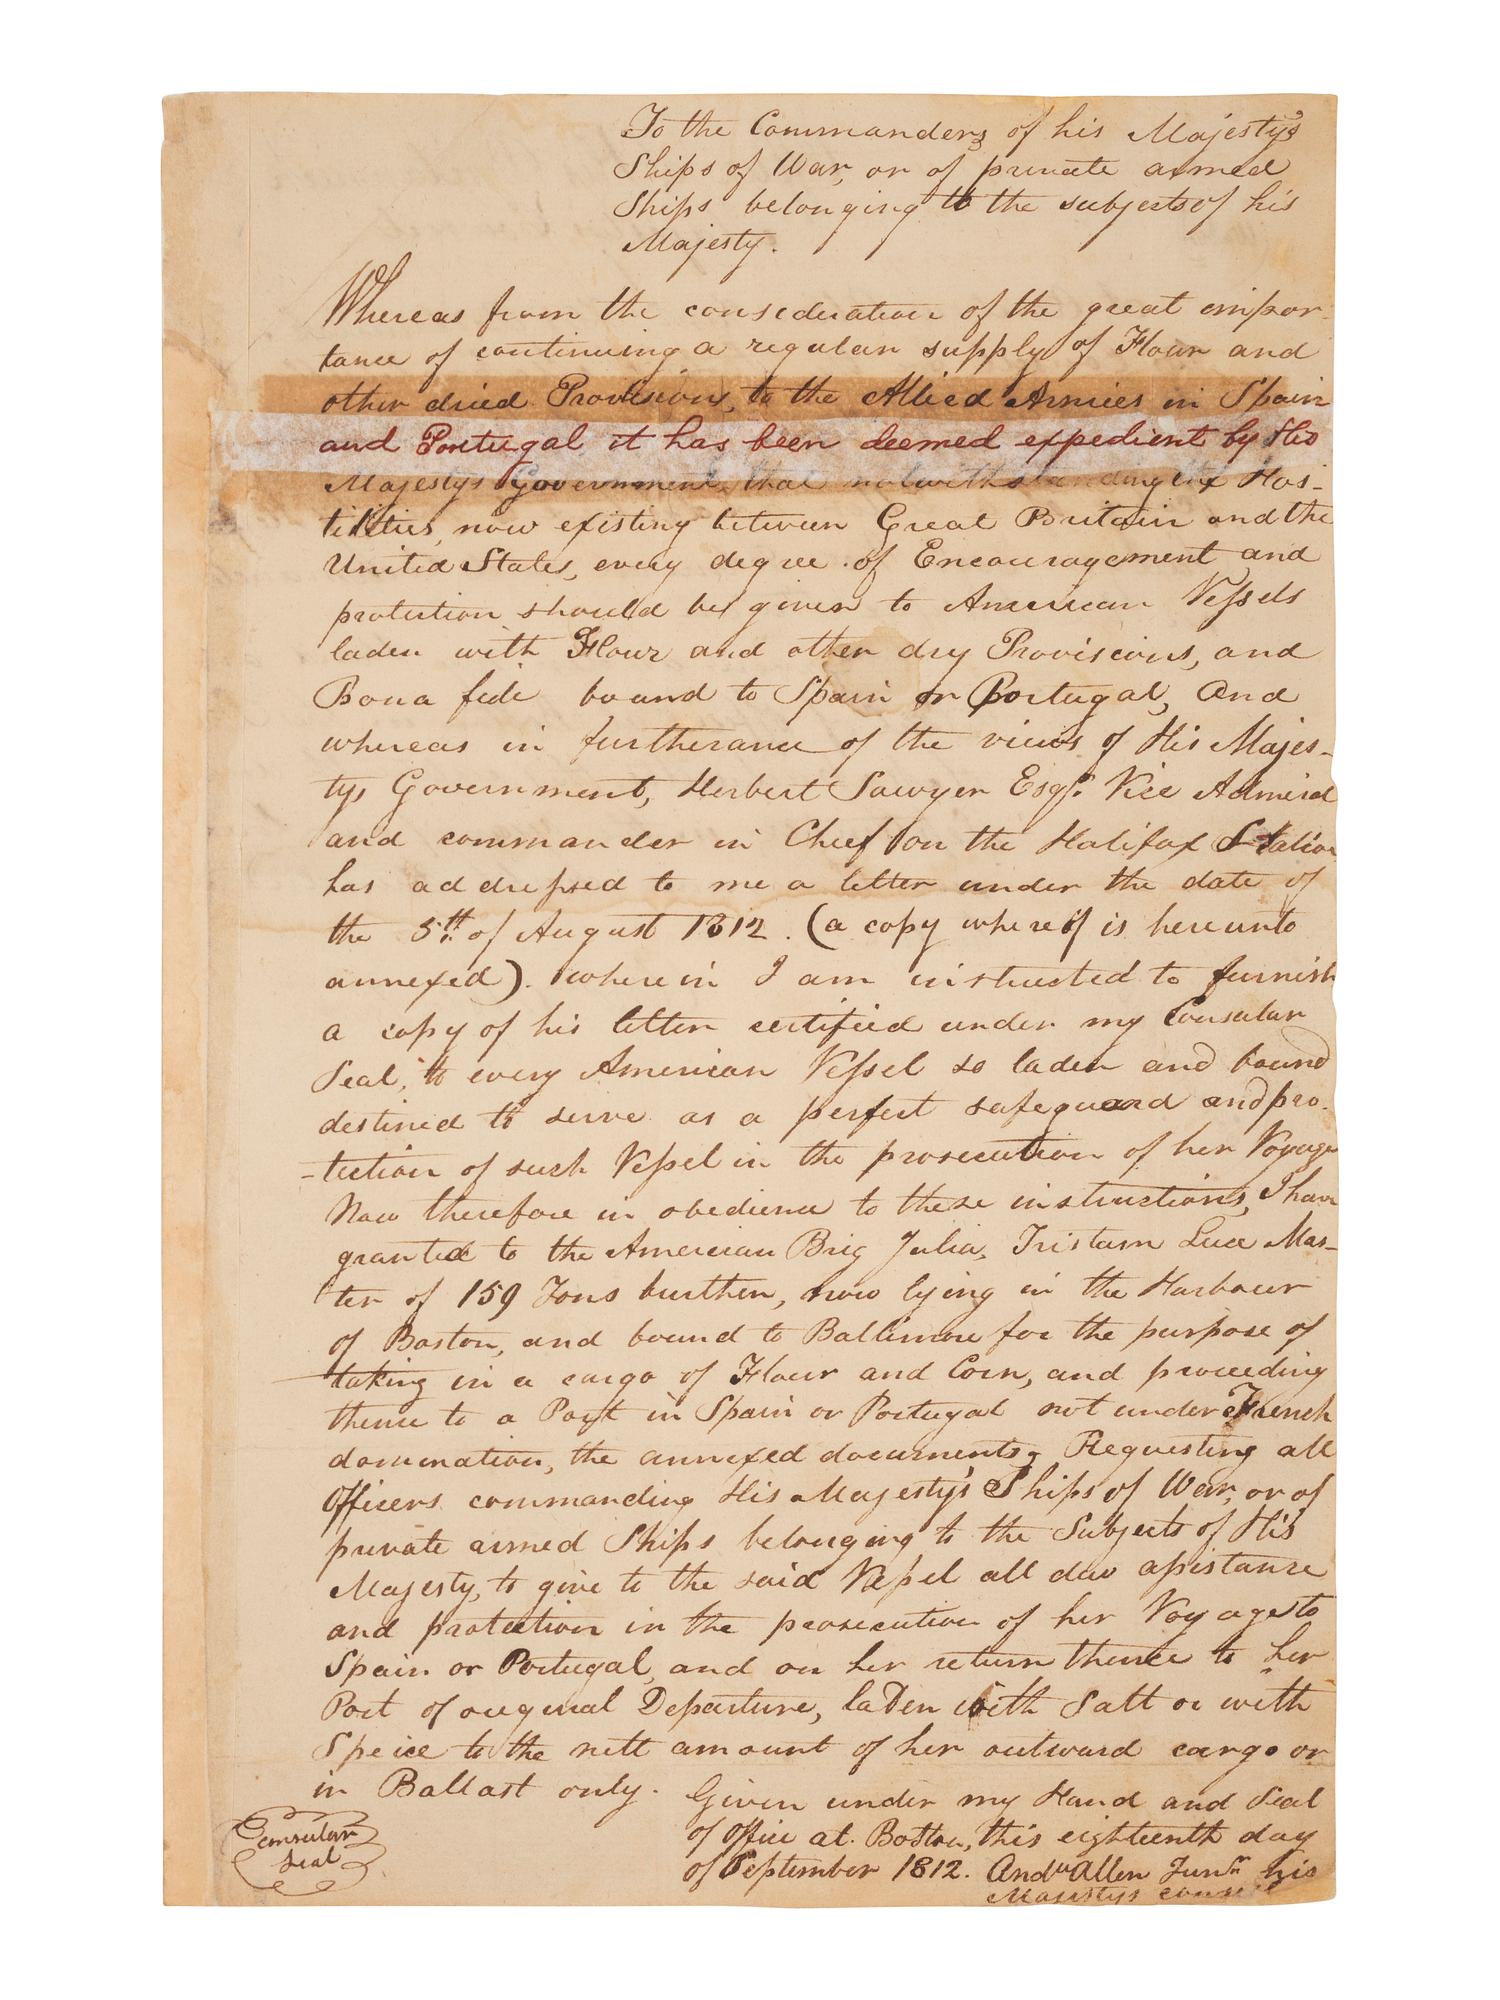 To the Commanders of his Majesty's
Ships of War, or of private armed
Ships belonging to the subjects of his
Majesty.
Whereas from the consideration of the great impor-
tance of continuing a regular supply of Flour and
other dried Provisions, to the Allied Armies in Spain
and Portugal it has been deemed expedient by His
Majestys Government, that notwithstanding the Hos-
tilities, now existing between Great Britain and the
United States, every degree of Encouragement and
protection should be given to American Vessels
laden with Flour and other dry Provisions, and
Bona fide bound to Spain or Portugal, And
whereas in furtherance of the views of His Majes-
tys Government, Herbert Sawyer Esqr. Vice Admiral
and commander in Cheif on the Halifax Station
has addressed to me a letter under the date of
the 5th of August 1812. (a copy whereof is hereunto
annexed). wherein I am instructed to furnish
a copy of his letter certified under my Consular
Seal, to every American Vessel so laden and bound
destined to serve as a perfect safeguard and pro-
-tection of such Vessel in the prosecution of her Voyage
Now therefore in obedience to these instructions, I have
granted to the American Brig Julia, Tristam Luce Mas-
ter of 159 Tons burthen, now lying in the Harbour
of Boston, and bound to Baltimore for the purpose of
taking in a cargo of Flour and Corn, and proceeding
thence to a Port in Spain or Portugal not under French
domination, the annexed documents, Requesting all
Officers commanding His Majesty's Ships of War, or of
private armed Ships belonging to the Subjects of His
Majesty, to give to the said Vessel all due assistance
and protection in the prosecution of her Voyage to
Spain or Portugal, and on her return thence to her
Port of original Departure, laden with Salt or with
Speice to the nett amount of her outward cargo or
in Ballast only. Given under my Hand and Seal
of Office at Boston, this eighteenth day
of September 1812. Andw Allen Junr his
Majestys consul
Consular
Seal